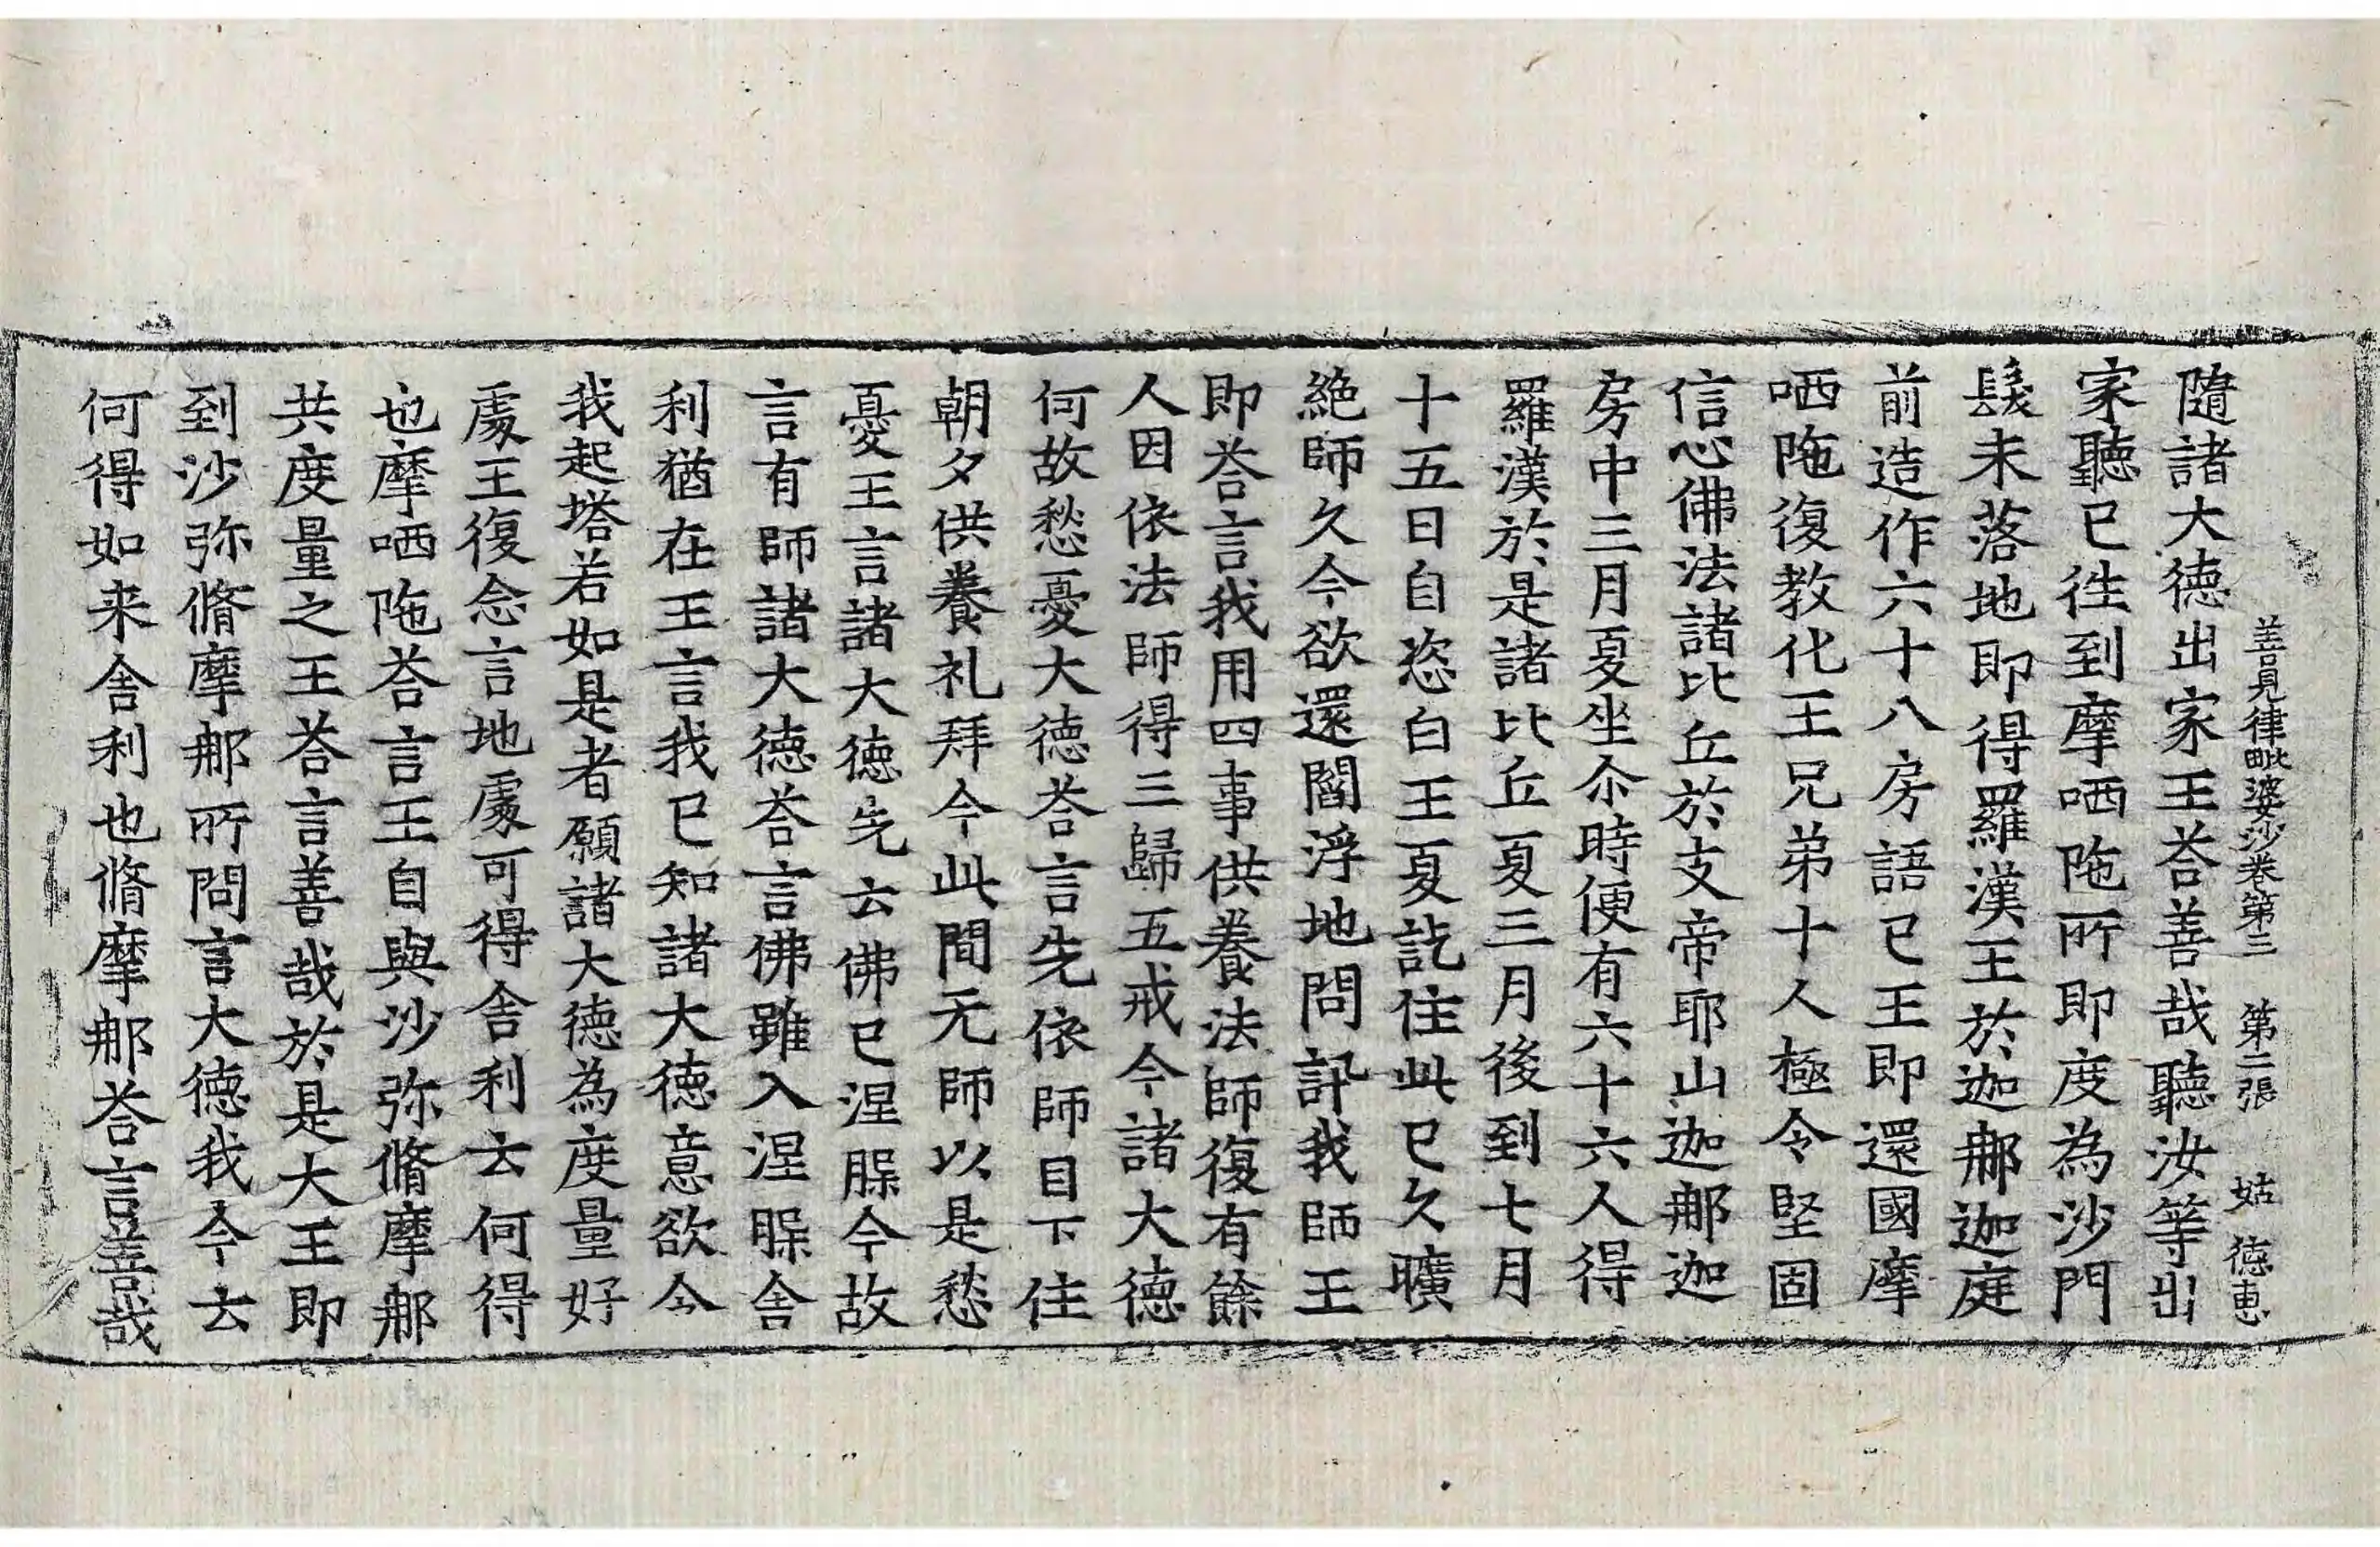 善見律毗婆沙卷第三　第二張　姑　德惠
隨諸大德出家王荅善哉聽汝等出
家聽已徃到摩哂陁所即度為沙門
髮未落地即得羅漢王於迦𨚗迦庭
前造作六十八房語已王即還國摩
哂陁復教化王兄弟十人極令堅固
信心佛法諸比丘於支帝耶山迦𨚗迦
房中三月夏坐尒時便有六十六人得
羅漢於是諸比丘夏三月後到七月
十五日自恣白王夏訖住此已久曠
絶師久今欲還閻浮地問訊我師王
即荅言我用四事供養法師復有餘
人因依法師得三歸五戒今諸大德
何故愁憂大德荅言先依師目下住
朝夕供養礼拜今此間无師以是愁
憂王言諸大德先云佛已涅槃今故
言有師諸大德荅言佛雖入涅槃舍
利猶在王言我已知諸大德意欲令
我起塔若如是者願諸大德為度量好
處王復念言地處可得舍利云何得
也摩哂陁荅言王自與沙弥脩摩𨚗
共度量之王荅言善哉於是大王即
到沙弥脩摩𨚗所問言大德我今云
何得如来舍利也脩摩𨚗荅言善哉